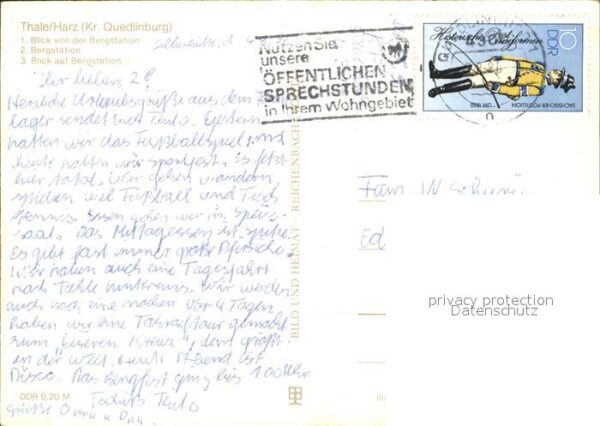 Thale/Harz (Kr. Quedlinburg)
1. Blick von der Bergstation
2. Bergstation
3. Blick auf Bergstation
Ihr lieben 2!
Herzliche Urlaubsgrüße aus dem
lager sendet Euch Tento. Gestern
hatten wir das Fußballspiel und
heute hatten wir Sportfest. Es fetzt
hier total. Wir gehen wandern,
spielen viel Fußball und Tisch
tennis. Essen gehen wir in Speise-
saal. Das Mittagessen ist
Es gibt fast immer große Pfirsiche
Wir haben auch eine Tagesfahrt
nach Thale unternom. Wir werden
auch noch eine machen. Vor 4 Tagen
haben wir eine Tagestour gemacht
zum "eisernen Kreuz", dem größt.
in der Welt. Heute Abend ist
Disco. Das Bergfest ging bis 1 00 Uhr
Tschüß Tento
Grüße Oma u. Opa
DDR 0,20 M
BILD UND HEIMAT REICHENBACH
Nutzen Sie
unsere
ÖFFENTLICHEN
SPRECHSTUNDEN
in Ihrem Wohngebiet
Historische Postuniformen
DDR
10
SÄCHSISCHER POSTILLION UM 1850
Fam.
Ed
privacy protection
Datenschutz